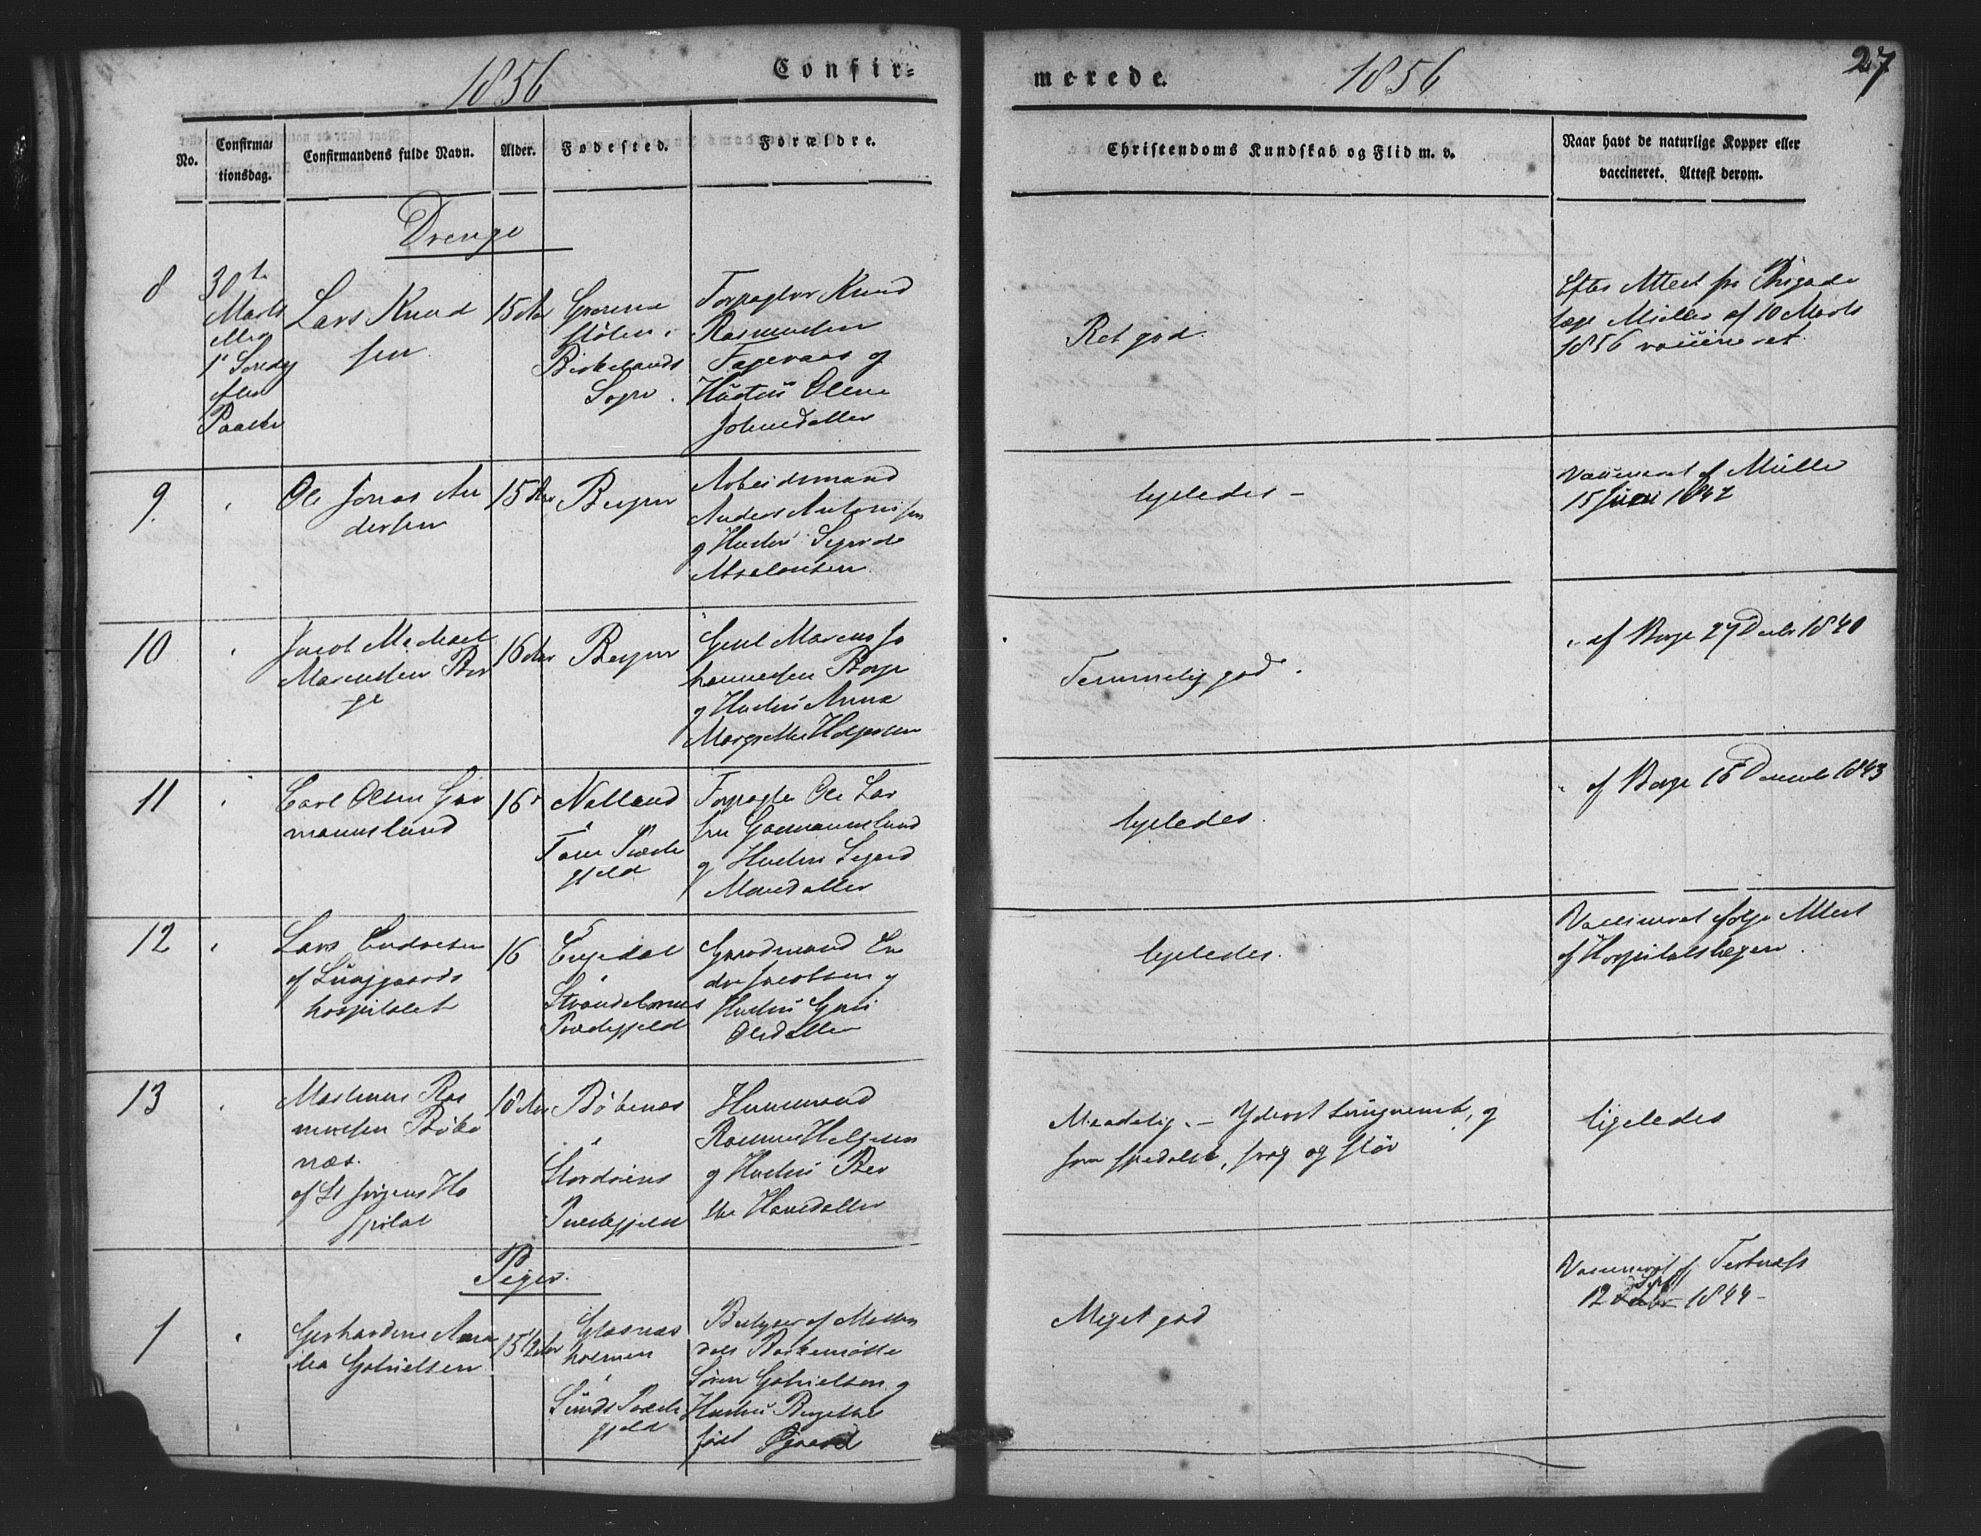 1856
Confir=
merede.
1856
27
No.
Confirma=
tionsdag.
Confirmandens fulde Navn.
Alder.
Fødested.
Forældre.
Christendoms Kundskab og Flid m. v.
Naar havt de naturlige Kopper eller
vaccineret. Attest derom.
Drenge
8
30te
Marts
eller
1' Sondg
efter
Paaske
Lars Knud
sen
15 Aar
Birkelands
Sogn.
Forpagter Knud
Rasmussen
og
Hustru Oline
Johnsdatter
Ret god.
Efter Attest fra Brigade
læge Müller af 10 Marts
1856 vaccineret.
9.
Ole Jonas An
dersen
15 Aar
Bergen
Arbeidsmand
Anders Antonisen
og Hustru
Absalonsen.
ligeledes –
Vaccineret af Müller
15 Juni 1842
10
Jacob Michael
Marcussen Bor
ge
16 Aar
Bergen
Marcus Jo
hannessen Borge
og Hustru Anna
Margrethe Holgersen
Temmelig god.
" af Borge 27 Decbr 1840
11
Carl Olsen Gar
mannslund
16
Forpagter Ole Lar
sen Garmannslund
og Hustru Sigrid
Monsdatter
ligeledes.
" af Borge 15 Decemb 1843
12
Lars Endresen
af Lunggaards
hospitalet
16
Strandebarms
Præstegjeld
Gaardmand En
dre Jacobsen og
Hustru Guri
Olsdatter
ligeledes.
Vaccineret ifølge Attest
af Hospitalslægen.
13
Martinus Ras
mussen Böke
næs.
af St Jørgens Ho
spital
18 Aar
Bökenæs
Stordøens
Præstegjeld
Huusmand
Rasmus Helgesen
og Hustru Ber
the Hansdatter
Maadelig. – Yderst tungnemt, og
som spedalsk, svag og sløv
ligeledes
Piger.
1
Gerhardine Ama
lia Gabrielsen
15 1/2 Aar
Glesnæs
holmen
Sunds Præste
gjeld
Bestyrer af
Søren Gabrielsen og
Hustru Bergithe
født
Meget god
Vaccineret af
12 Sept 1844 –